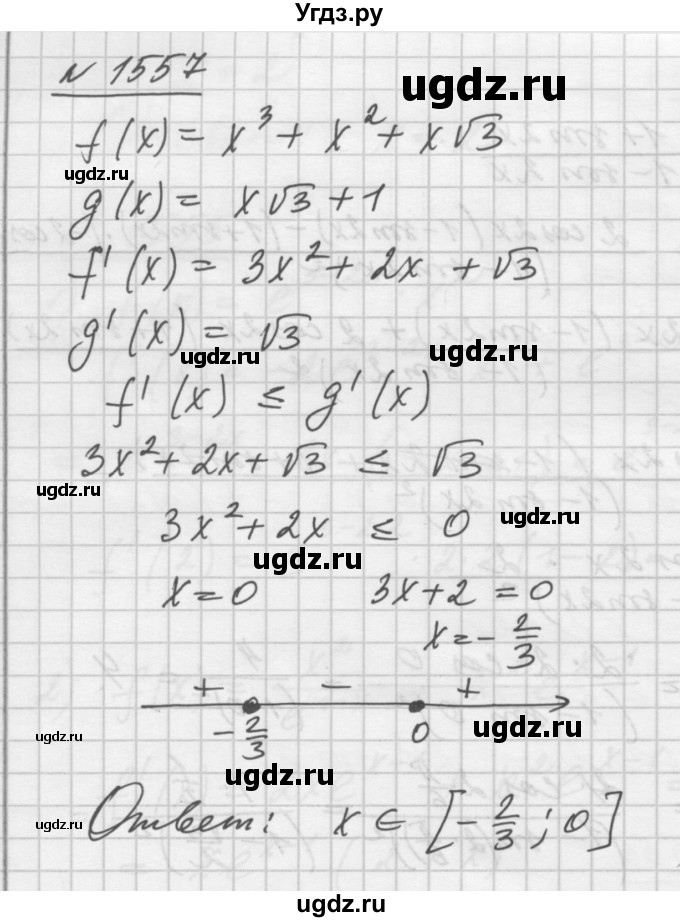 Угдз.ру
N 1557
ugdz.ru
f(x) = x³ + x² + x√3
ugdz.ru
g(x) = x√3 + 1
f'(x) = 3x² + 2x + √3
g'(x) = √3
ugdz.ru
ugdz.ru
f'(x) ≤ g'(x)
3x² + 2x + √3 ≤ √3
ugdz.ru
3x² + 2x ≤ 0
ugdz.ru
ugdz.ru
x = 0 3x + 2 = 0
x = -2/3
+ - +
-2/3 0
ugdz.ru
ugdz.ru
ugdz.ru
Ответ: x ∈ [-2/3; 0]
ugdz.ru
ugdz.ru